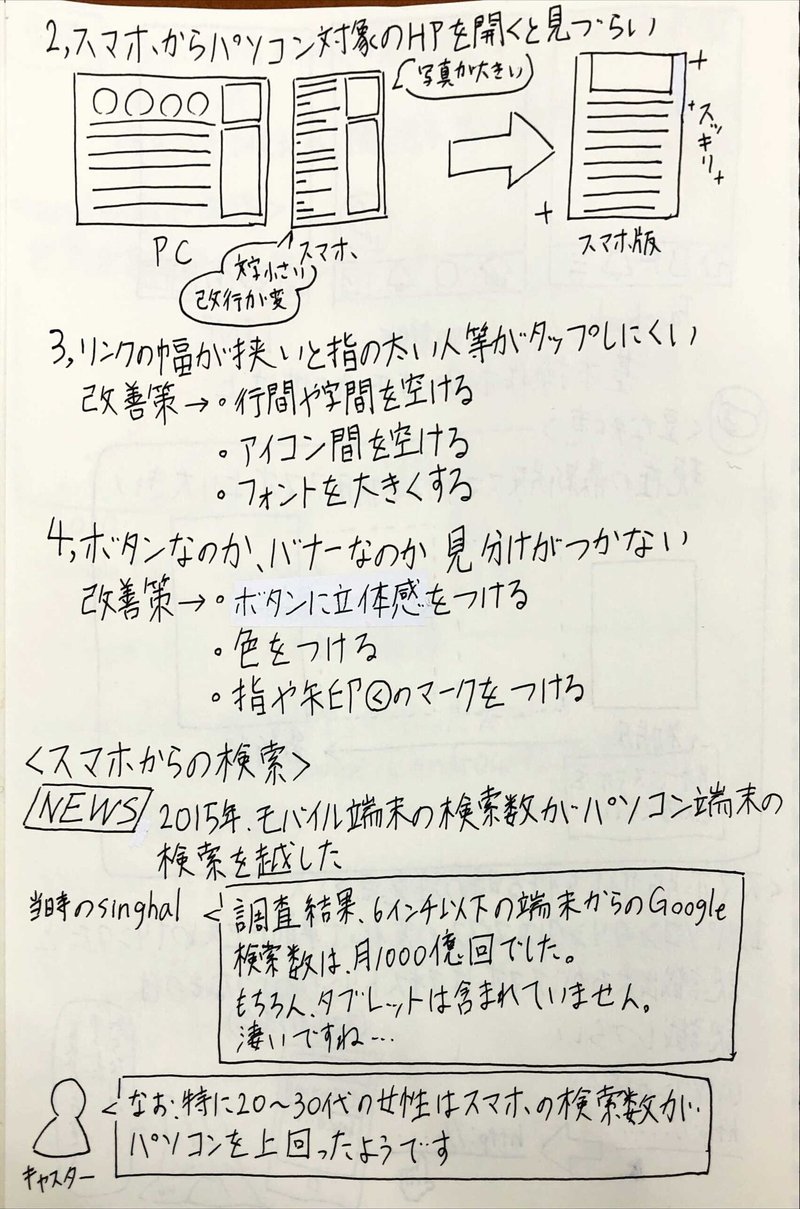 2,スマホからパソコン対象のHPを開くと見づらい
写真が大きい
スッキリ
PC
スマホ
スマホ版
文字小さい
改行が変
3,リンクの幅が狭いと指の太い人等がタップしにくい
改善策→・行間や字間を空ける
・アイコン間を空ける
・フォントを大きくする
4,ボタンなのか、バナーなのか見分けがつかない
改善策→・ボタンに立体感をつける
・色をつける
・指や矢印のマークをつける
<スマホからの検索>
NEWS 2015年、モバイル端末の検索数がパソコン端末の
検索を越した
当時のsinghal
調査結果、6インチ以下の端末からのGoogle
検索数は、月1000億回でした。
もちろん、タブレットは含まれていません。
凄いですね…
なお、特に20〜30代の女性はスマホの検索数が
パソコンを上回ったようです
キャスター